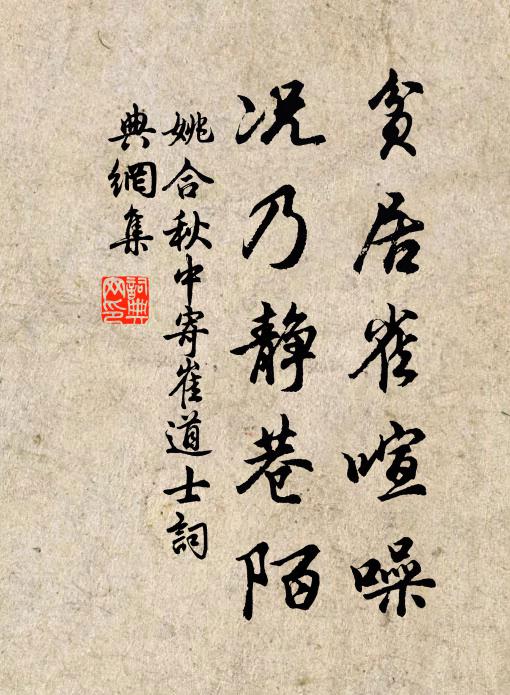 貧居雀喧噪
况乃静巷陌
姚合秋中寄崔道士詞
典網集
詞典
网印